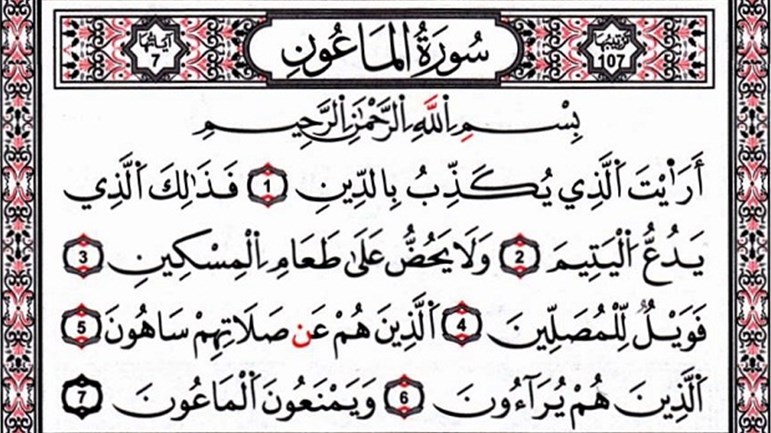 آيَاتُهَا 7 سُورَةُ الْمَاعُونِ تَرْتِيبُهَا 107
بِسْمِ اِ۬للَّهِ اِ۬لرَّحْمَٰنِ اِ۬لرَّحِيمِ
أَرَأَيْتَ اَ۬لَّذِي يُكَذِّبُ بِالدِّينِ 1 فَذَٰلِكَ اَ۬لَّذِي
يَدُعُّ اُ۬لْيَتِيمَ 2 وَلَا يَحُضُّ عَلَىٰ طَعَامِ اِ۬لْمِسْكِينِ 3
فَوَيْلٌ لِّلْمُصَلِّينَ 4 اَ۬لَّذِينَ هُمْ عَن صَلَاتِهِمْ سَاهُونَ 5
اَ۬لَّذِينَ هُمْ يُرَآءُونَ 6 وَيَمْنَعُونَ اَ۬لْمَاعُونَ 7